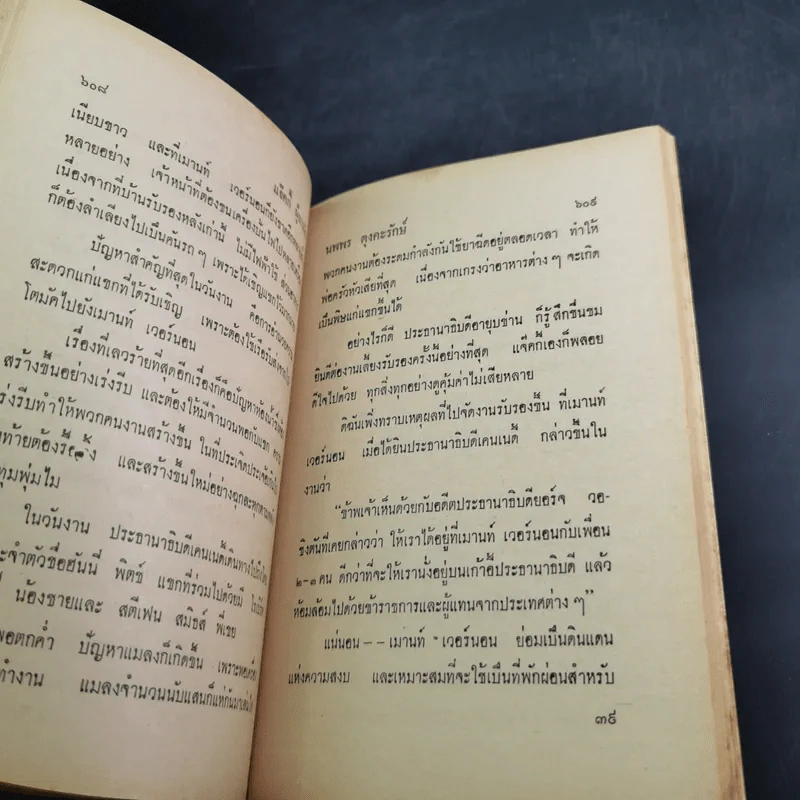 ๖๐๘
เนียบขาว และที่เมานท์ เวอร์นอนก็ยัง
หลายอย่าง เจ้าหน้าที่ต้องขนเครื่องปั่นไฟไป
เนื่องจากที่บ้านรับรองหลังเก่านี้ ไม่มีไฟฟ้าใช้
ก็ต้องลำเลียงไปเป็นคันรถ ๆ เพราะได้เชิญแขกไว้
ปัญหาสำคัญที่สุดในวันงาน คือการอำนวยความ
สะดวกแก่แขกที่ได้รับเชิญ เพราะต้องใช้เรือรับส่ง
โตมัคไปยังเมานท์ เวอร์นอน
เรื่องที่เลวร้ายที่สุดอีกเรื่องก็คือปัญหาห้องน้ำ
สร้างขึ้นอย่างเร่งรีบ และต้องให้มีจำนวนพอกับแขก
ร่งรีบทำให้พวกคนงานสร้างขึ้น ในที่ประเจิดประเจ้อ
ท้ายต้องรื้อทิ้ง และสร้างขึ้นใหม่อย่างฉุกละหุก
ทุมพุ่มไม
ในวันงาน ประธานาธิบดีเคนเนดี้เดินทางไป
ะจำตัวชื่อฮันนี่ ฟิตซ์ แขกที่ร่วมไปด้วยมี
น้องชายและ สตีเฟน สมิธส์ พี่เขย
พอตกค่ำ ปัญหาแมลงก็เกิดขึ้น เพราะ
ทำงาน แมลงจำนวนนับแสนก็แห่กันมา
๖๐๙
นพพร ตุงคะรักษ์
พวกคนงานต้องระดมกำลังกันใช้ยาฉีดอยู่ตลอดเวลา ทำให้
พ่อครัวหัวเสียที่สุด เนื่องจากเกรงว่าอาหารต่าง ๆ จะเกิด
เป็นพิษแก่แขกขึ้นได้
อย่างไรก็ดี ประธานาธิบดีอายุบข่าน ก็รู้สึกชื่นชม
ยินดีต่องานเลี้ยงรับรองครั้งนี้อย่างที่สุด แจ๊คกี้เองก็พลอย
ดีใจไปด้วย ทุกสิ่งทุกอย่างดูคุ้มค่าไม่เสียหลาย
ดิฉันเพิ่งทราบเหตุผลที่ไปจัดงานรับรองขึ้น ที่เมานท์
เวอร์นอน เมื่อได้ยินประธานาธิบดีเคนเนดี้ กล่าวขึ้นใน
งานว่า
“ข้าพเจ้าเห็นด้วยกับอดีตประธานาธิบดียอร์จ วอ-
ชิงตันที่เคยกล่าวว่า ให้เราได้อยู่ที่เมานท์ เวอร์นอนกับเพื่อน
๒-๓ คน ดีกว่าที่จะให้เรานั่งอยู่บนเก้าอี้ประธานาธิบดี แล้ว
ห้อมล้อมไปด้วยข้าราชการและผู้แทนจากประเทศต่าง ๆ”
แน่นอน -- เมานท์ เวอร์นอน ย่อมเป็นดินแดน
แห่งความสงบ และเหมาะสมที่จะใช้เป็นที่พักผ่อนสำหรับ
๓๙